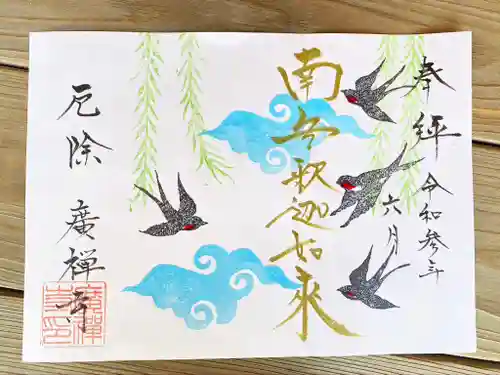 奉拝 令和参年
六月
南無釈迦如来
厄除 廣禅寺
廣禅
寺印